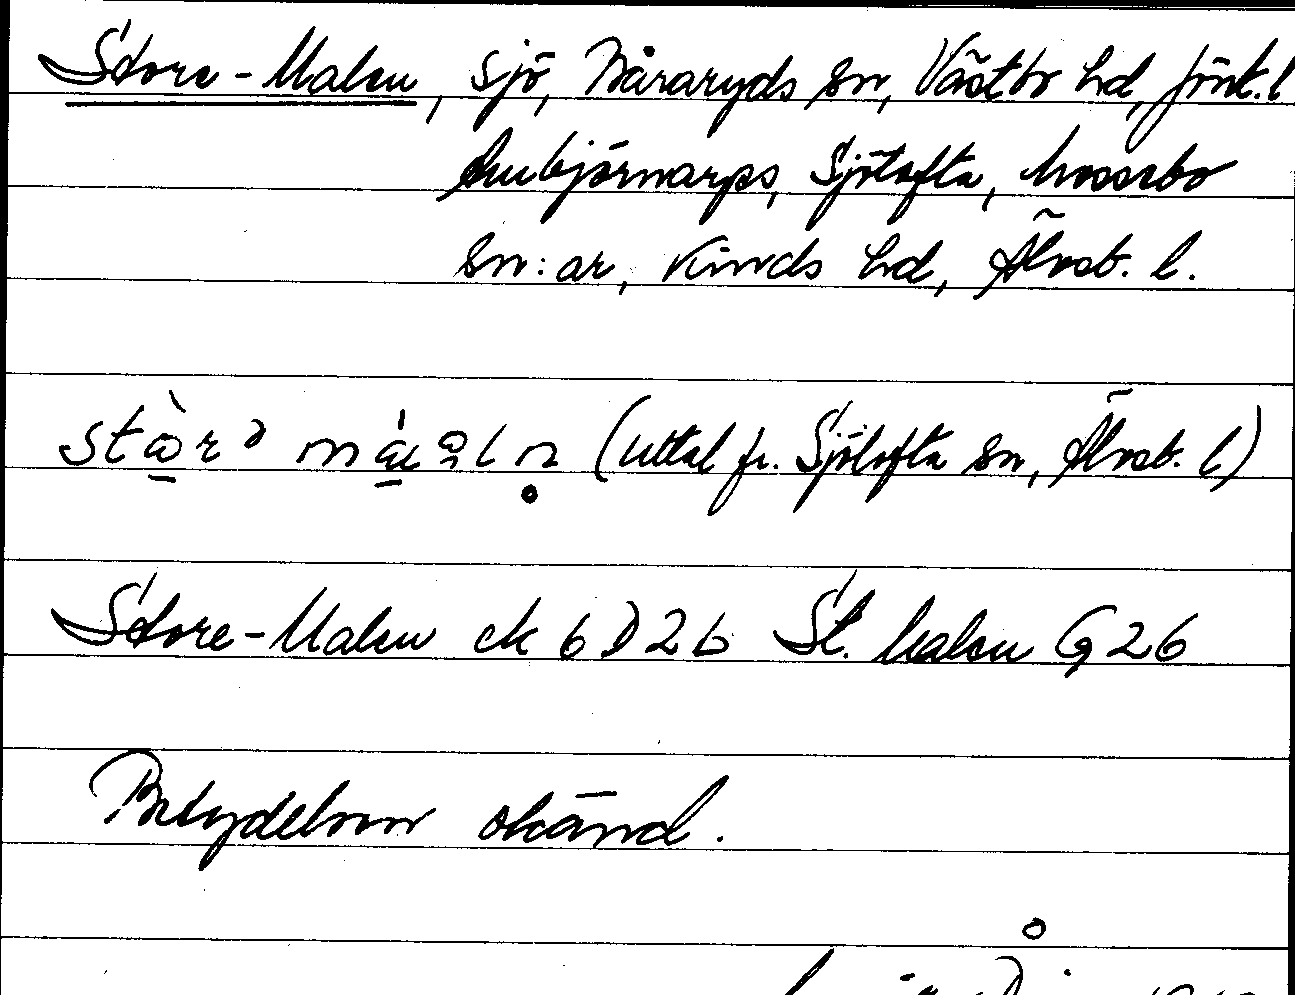 Store-Malen, sjö, Båraryds sn, Västbo hd, Jönk. l
Ambjörnarps, Sjötofta, Mossebo
sn:ar, Kinds hd, Älvsb. l.
(uttal fr. Sjötofta sn, Älvsb. l)
Store-Malen ek 6D2b St. Malen G26
Betydelsen okänd.